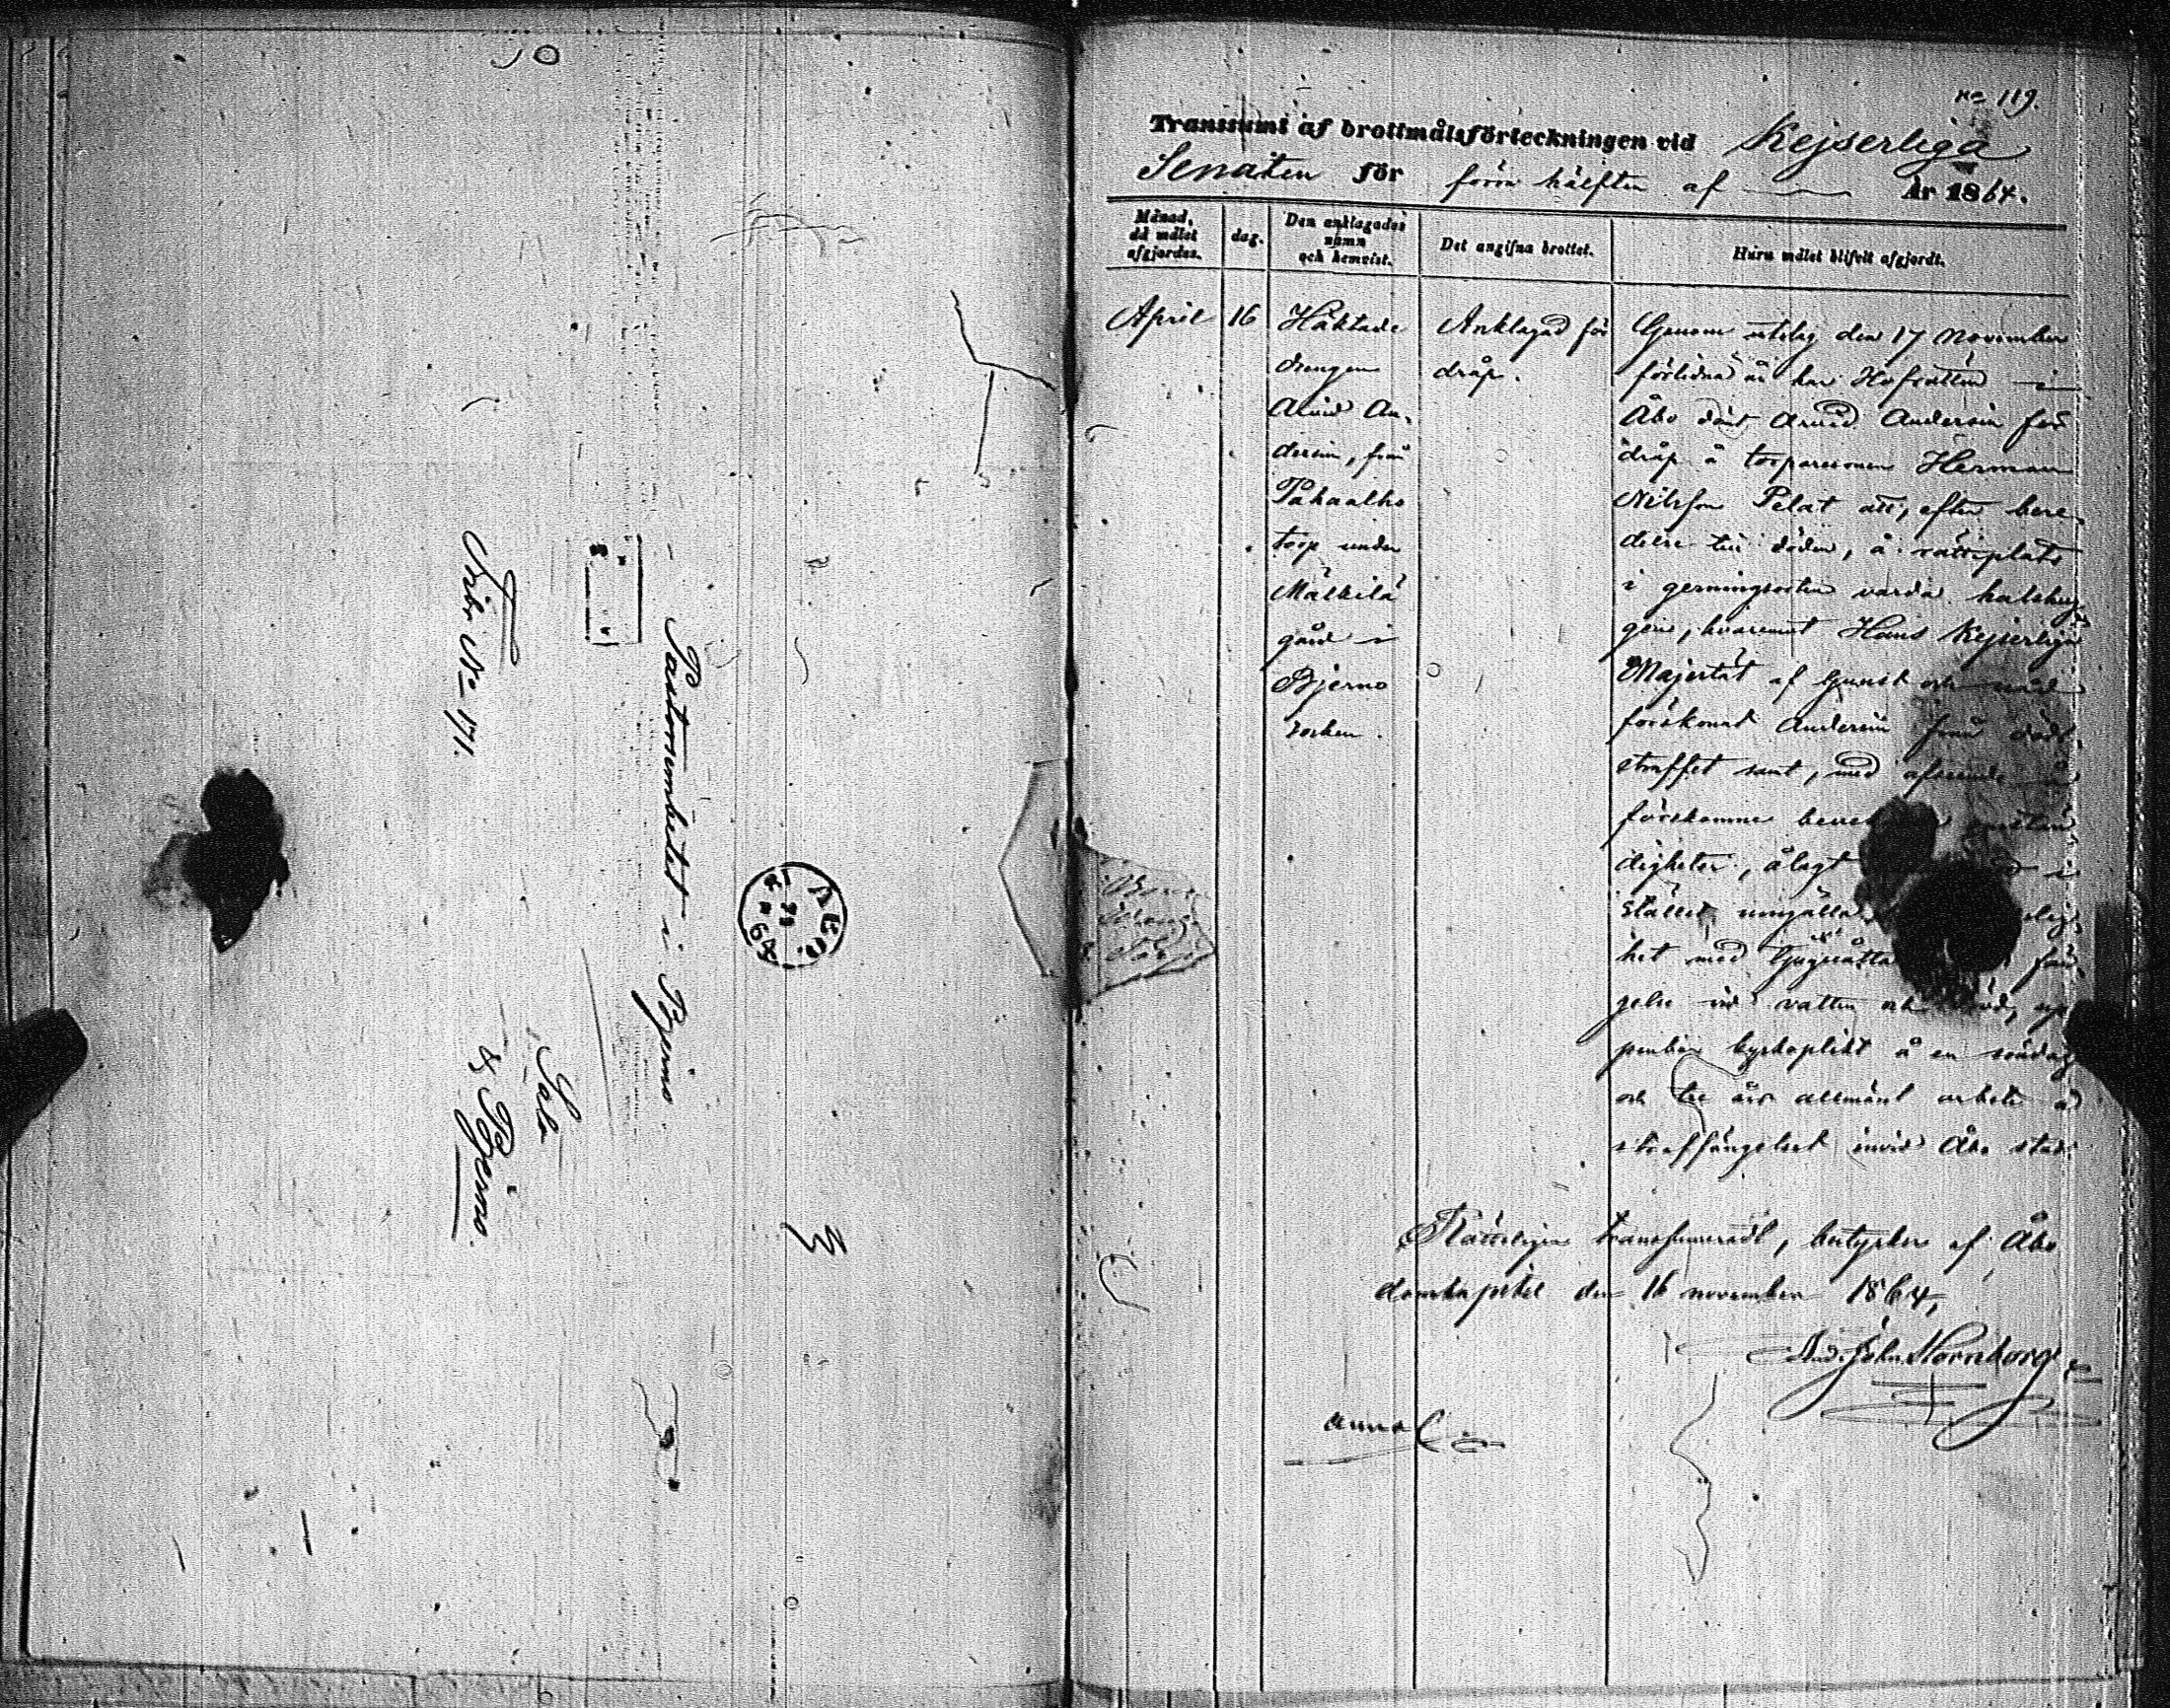 Fribr. No 171.
Pastorsembetet i Bjerno
Salo
& Bjerno.
ÅBO
64
No 119.
Transsumt af brottmålsförteckningen vid Kejserliga
Senaten för förra hälften af År 1864.
Månad, då målet afgjordes.
dag.
Den anklagades namn och hemvist.
Det angifna brottet.
Huru målet blifvit afgjordt.
April
16
Häktade
drengen
Arvid An-
dersin, från
Påhaalho
torp under
Mälkilä
gård i
Bjerno
socken.
Anklagad för
dråp.
Genom utslag den 17 November
förlidna år har Hofrätten i
Åbo dömt Arvid Andersin för
dråp å torparesonen Herman
Nilsson Pelat att, efter bere-
delse till döden, å rättsplats
i gerningsorten varda halshug-
gen, hvaremot Hans Kejserliga
Majestät af Gunst och nåd
förskonat Andersin från döds-
straffet samt, med afseende å
förekomne omstän-
digheter, ålagt i
stället umgälla
het med tjuguåtta fän-
gelse vid vatten och bröd, up-
penbar kyrkoplikt å en söndag
och tre års allmänt arbete å
straffängelset invid Åbo stad.
Rätteligen transsumeradt, betyder af Åbo
domkapitel den 16 november 1864,
And. John Hornborg